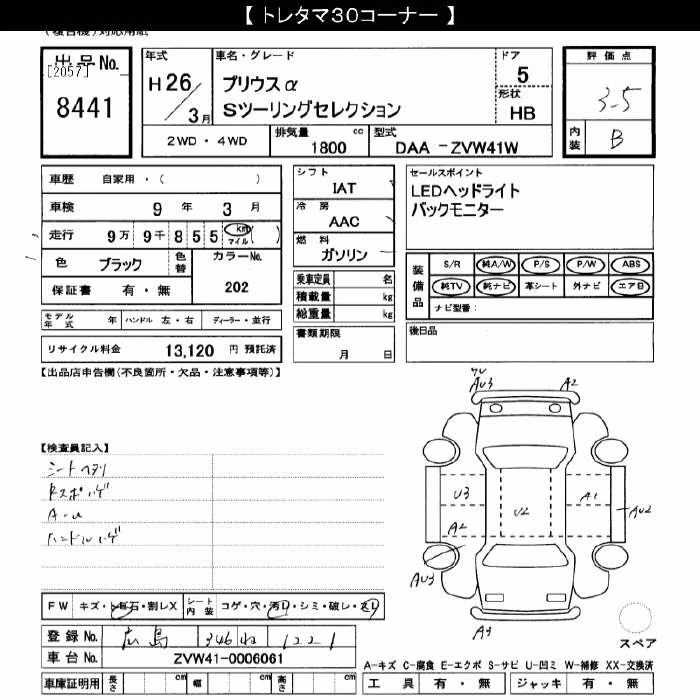 【 トレタマ30コーナー 】
(複合機)対応用紙
出品No.
[2057]
8441
年式
H26/3月
車名・グレード
プリウスα
Sツーリングセレクション
ドア
5
形状
HB
2WD ・ 4WD
排気量
1800 cc
型式
DAA -ZVW41W
評価点
3-5
内装
B
車歴 自家用・( )
車検 9 年 3 月
走行 9万 9千 8 5 5 km マイル ( )
色 ブラック
色替
カラーNo.
202
保証書 有・無
モデル年式 年 ハンドル 左・右 ディーラー・並行
リサイクル料金 13,120 円 預託済
シフト
IAT
冷房
AAC
燃料
ガソリン
乗車定員 名
積載量 kg
総重量 kg
書類期限
月 日
セールスポイント
LEDヘッドライト
バックモニター
装備品
S/R 純A/W P/S P/W ABS
純TV 純ナビ 革シート 外ナビ エアB
ナビ型番:
後日品
【出品店申告欄(不良箇所・欠品・注意事項等)】
【検査員記入】
シートヘタリ
A-U
ハンドルハゲ
AU3
A2
U3
U2
A1
AU2
A2
AU3
A3
スペア
FW キズ・飛石・割レX
シート内装 コゲ・穴・汚レ・シミ・破レ・スレ
登録No. 広島 346 ね 1221
車台No. ZVW41-0006061
車庫証明用 長さ cm 幅 cm 高さ cm
A-キズ C-腐食 E-エクボ S-サビ U-凹ミ W-補修 XX-交換済
工具 有・無 ジャッキ 有・無